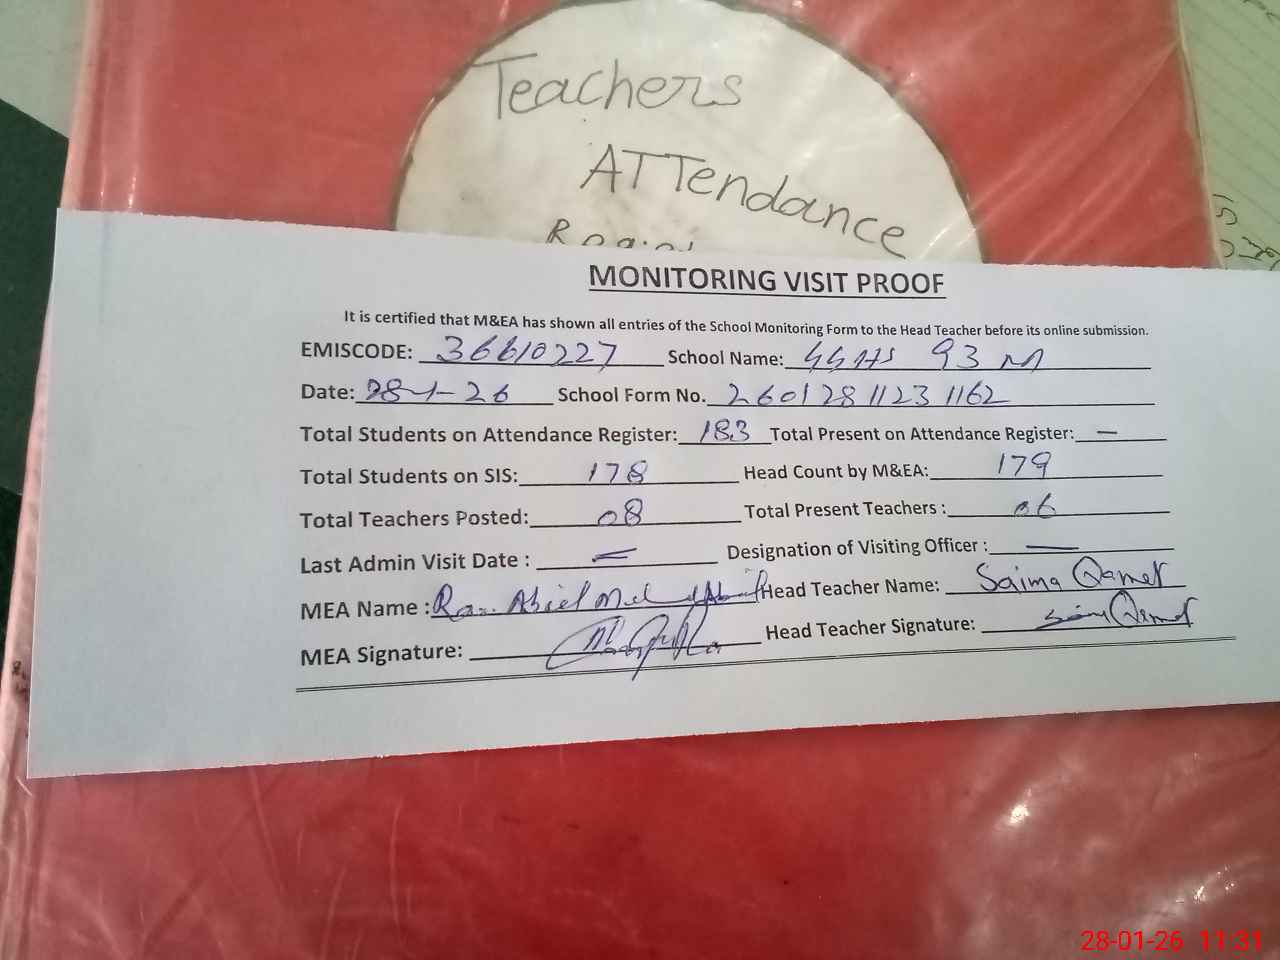 Teachers
ATTendance
MONITORING VISIT PROOF
It is certified that M&EA has shown all entries of the School Monitoring Form to the Head Teacher before its online submission.
EMISCODE: 36610227 School Name: GGHS 93 M
Date: 28-1-26 School Form No. 2601281123 1162
Total Students on Attendance Register: 183 Total Present on Attendance Register: —
Total Students on SIS: 178 Head Count by M&EA: 179
Total Teachers Posted: 08 Total Present Teachers : 06
Last Admin Visit Date : — Designation of Visiting Officer : —
MEA Name : Head Teacher Name: Saima Qamer
MEA Signature: Head Teacher Signature: Saima Qamer
28-01-26 11:31